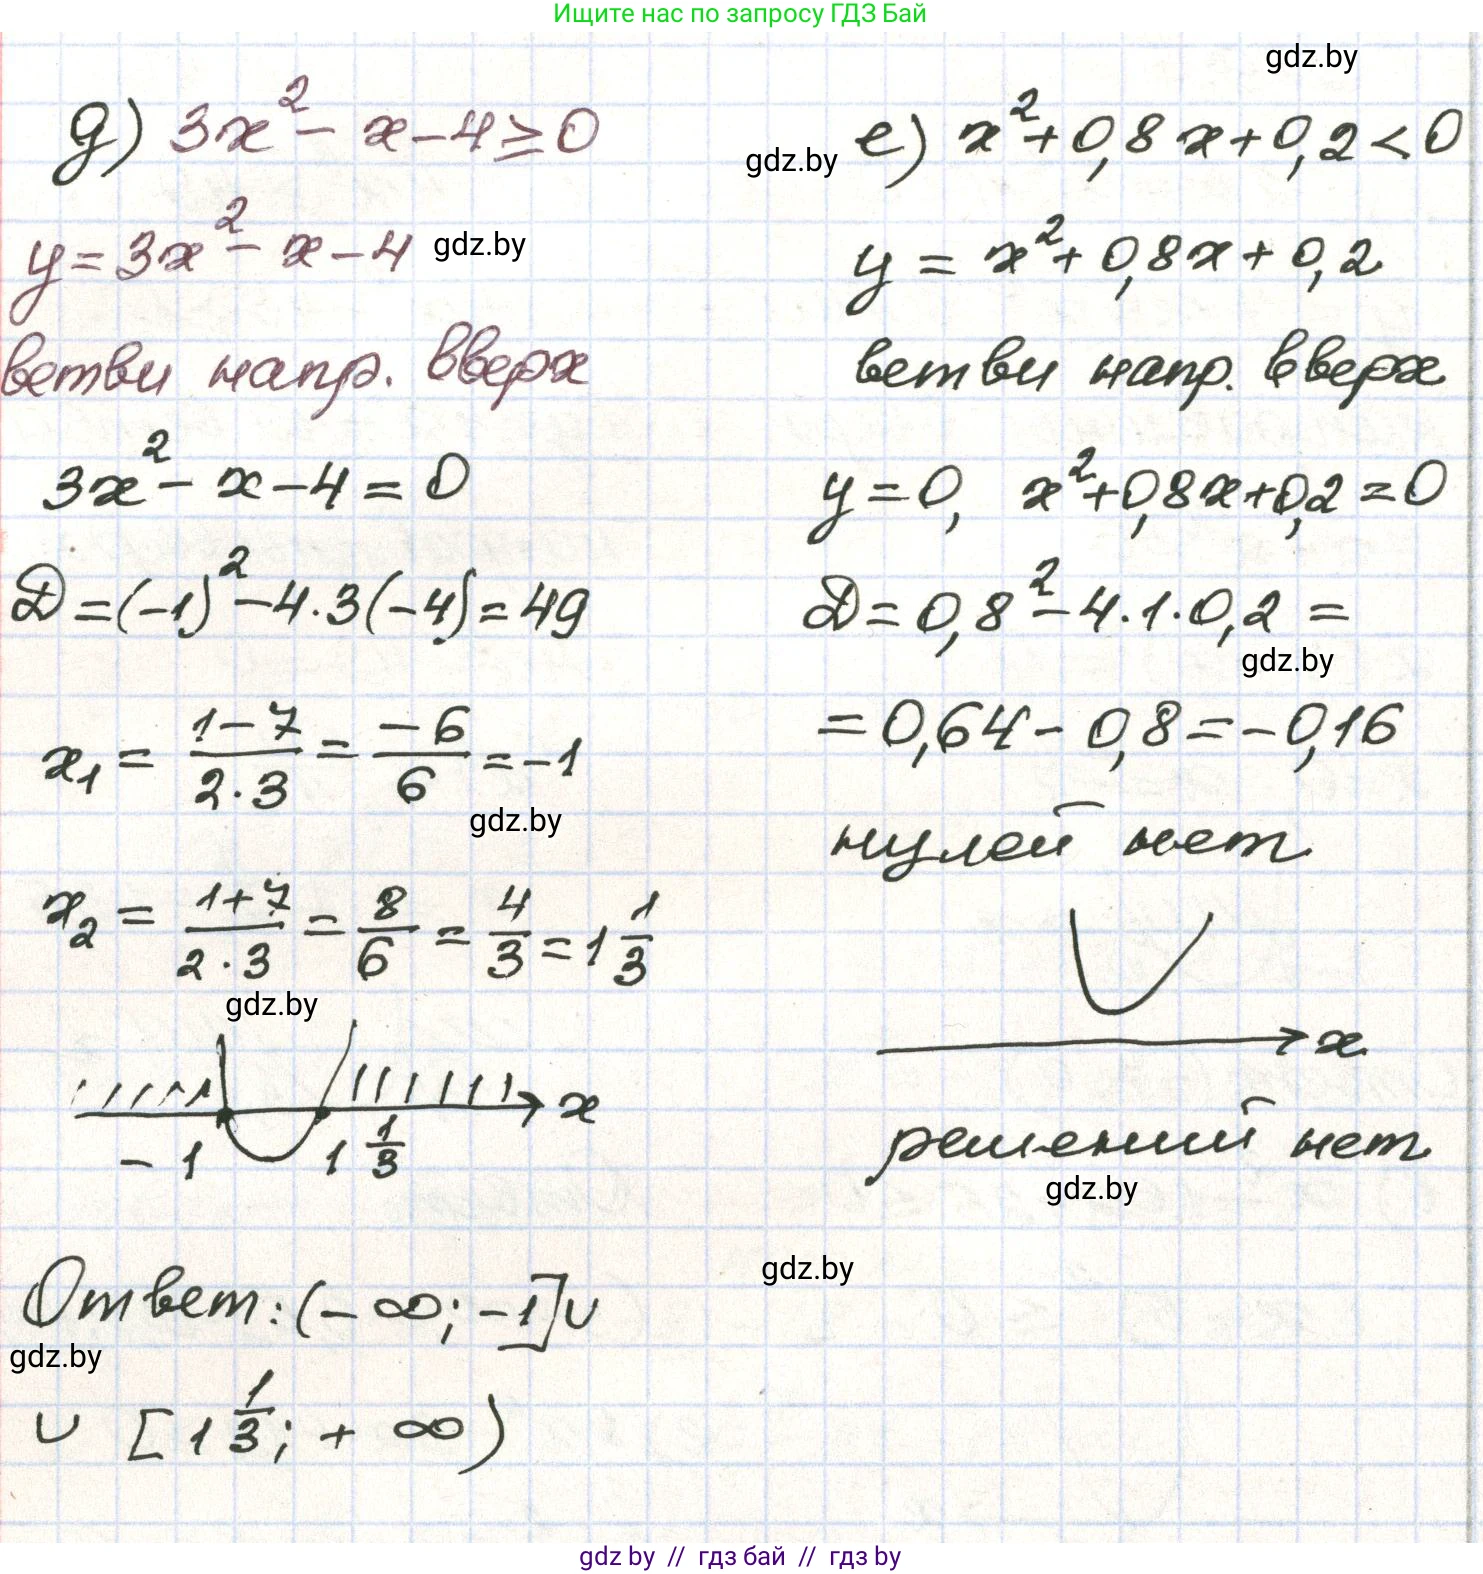 Ищите нас по запросу ГДЗ Бай
gdz.by
д) 3x² - x - 4 ≥ 0
y = 3x² - x - 4
gdz.by
ветви напр. вверх
3x² - x - 4 = 0
D = (-1)² - 4·3(-4) = 49
x₁ = (1-7)/(2·3) = -6/6 = -1
gdz.by
x₂ = (1+7)/(2·3) = 8/6 = 4/3 = 1 1/3
gdz.by
x
-1 1 1/3
Ответ: (-∞; -1] ∪
gdz.by
∪ [1 1/3; +∞)
gdz.by
е) x² + 0,8x + 0,2 < 0
y = x² + 0,8x + 0,2
ветви напр. вверх
y = 0, x² + 0,8x + 0,2 = 0
D = 0,8² - 4·1·0,2 =
gdz.by
= 0,64 - 0,8 = -0,16
нулей нет
x
решений нет
gdz.by
gdz.by
gdz by // гдз бай // гдз by